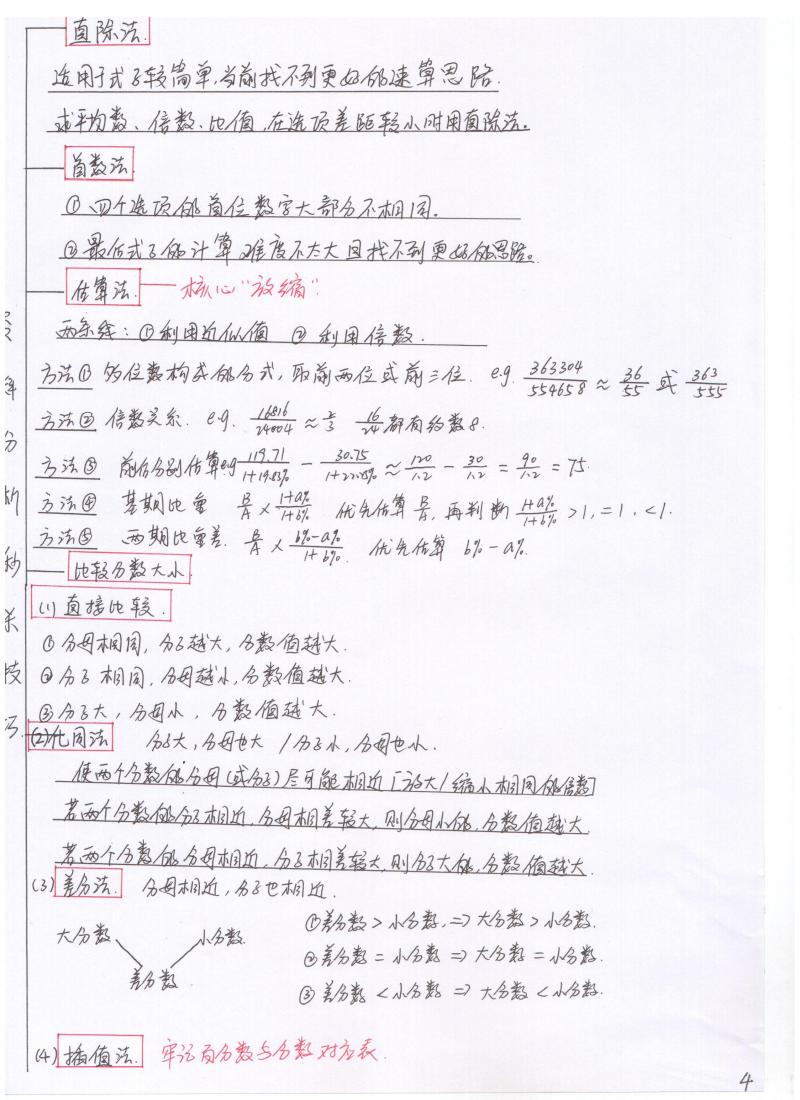 直除法.
适用于式子较简单,当前找不到更好的速算思路.
求平均数、倍数、比值,在选项差距较小时用直除法。
首数法.
① 四个选项的首位数字大部分不相同。
② 最后式子的计算难度不太大且找不到更好的思路。
估算法. 核心"放缩".
两条线:①利用近似值 ② 利用倍数.
方法① 多位数构成的分式,取前两位或前三位. e.g. 363304/554658 ≈ 36/55 或 363/555
方法② 倍数关系. e.g. 16816/24004 ≈ 2/3 16/24都有约数8.
方法③ 前后分别估算e.g 119.71/1+19.83% − 30.75/1+22.25% ≈ 120/1.2 − 30/1.2 = 90/1.2 = 75.
方法④ 基期比重 B/A × 1+a%/1+b% 优先估算 B/A, 再判断 1+a%/1+b% >1, =1, <1.
方法⑤ 两期比重差. B/A × b%−a%/1+b%. 优先估算 b%−a%.
比较分数大小
(1) 直接比较.
① 分母相同,分子越大,分数值越大.
② 分子相同,分母越小,分数值越大.
③ 分子大,分母小,分数值越大.
(2)化同法 分子大,分母也大 / 分子小,分母也小.
使两个分数的分母(或分子)尽可能相近「放大/缩小相同的倍数」
若两个分数的分子相近,分母相差较大,则分母小的,分数值越大
若两个分数的分母相近,分子相差较大,则分子大的,分数值越大.
(3) 差分法. 分母相近,分子也相近.
大分数 小分数.
差分数
①差分数 > 小分数, ⇒ 大分数 > 小分数.
②差分数 = 小分数 ⇒ 大分数 = 小分数.
③ 差分数 < 小分数 ⇒ 大分数 < 小分数.
(4) 插值法. 牢记百分数与分数对应表.
分
析
秒
杀
技
巧
4